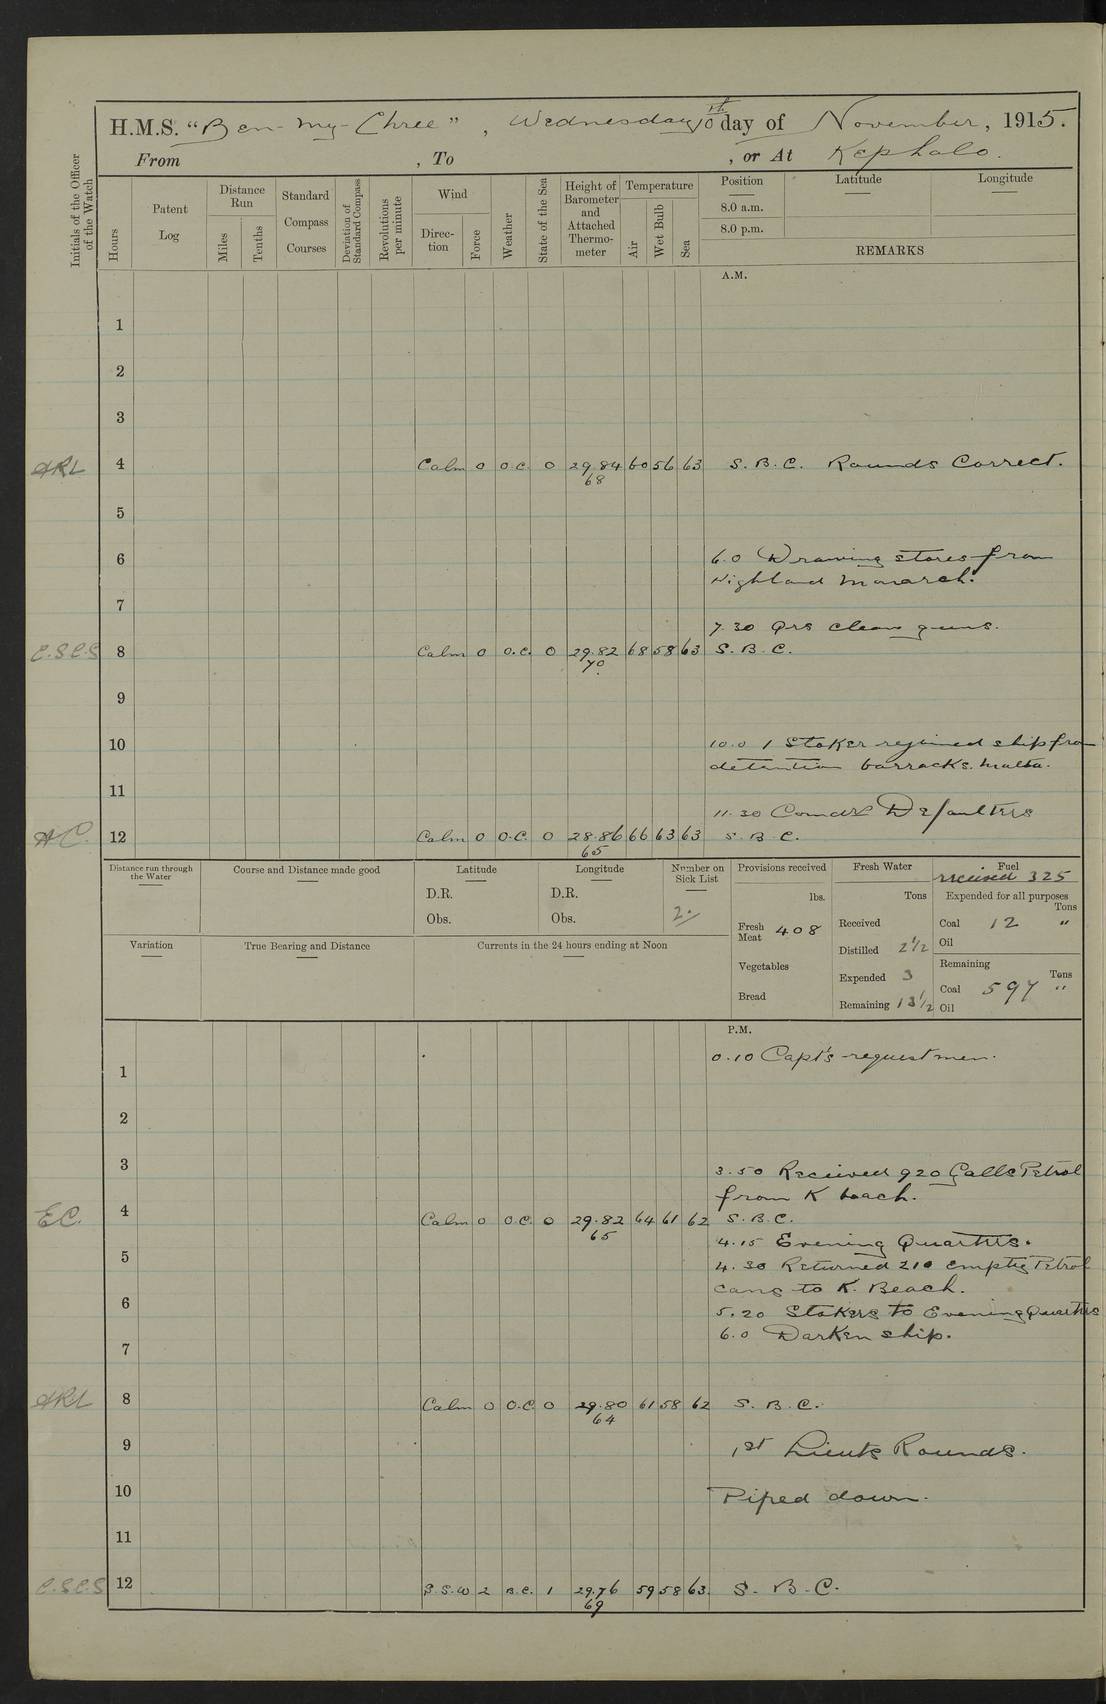 H.M.S. "Ben-my-Chree", Wednesday 10th day of November, 1915.
From , To , or At Kephalo.
Initials of the Officer of the Watch
Hours
Patent Log
Distance Run
Miles
Tenths
Standard Compass Courses
Deviation of Standard Compass
Revolutions per minute
Wind
Direction
Force
Weather
State of the Sea
Height of Barometer and Attached Thermometer
Temperature
Air
Wet Bulb
Sea
Position
Latitude
Longitude
8.0 a.m.
8.0 p.m.
REMARKS
A.M.
1
2
3
ARL 4 Calm 0 O.C. 0 29.84 60 56 63 S.B.C. Rounds Correct.
68
5
6 6.0 Drawing stores from
Highland Monarch.
7
7.30 Qrs clean guns.
C.S.C.S 8 Calm 0 O.C. 0 29.82 68 58 63 S.B.C.
70
9
10 10.0 1 Stoker rejoined ship from
detention barracks. Malta.
11
11.30 Comdr Defaulters
12 Calm 0 O.C. 0 28.86 66 63 63 S.B.C.
65
Distance run through the Water
Course and Distance made good
Latitude
D.R.
Obs.
Longitude
D.R.
Obs.
Number on Sick List
2.
Provisions received
lbs.
Fresh Meat 408
Vegetables
Bread
Fresh Water
Tons
Received
Distilled 2 1/2
Expended 3
Remaining 13 1/2
Fuel
received 325
Expended for all purposes
Tons
Coal 12 "
Oil
Remaining
Tons
Coal 597 "
Oil
Variation
True Bearing and Distance
Currents in the 24 hours ending at Noon
P.M.
0.10 Capt's request men.
1
2
3 3.50 Received 920 Galls Petrol
from K beach.
EC. 4 Calm 0 O.C. 0 29.82 64 61 62 S.B.C.
65
4.15 Evening Quarters.
5 4.30 Returned 210 empty Petrol
cans to K. Beach.
6 5.20 Stokers to Evening Quarters
6.0 Darken ship.
7
ARL 8 Calm 0 O.C 0 29.80 61 58 62 S.B.C.
64
9 1st Lieuts Rounds.
10 Piped down.
11
C.S.C.S 12 S.S.W 2 B.C. 1 29.76 59 58 63 S.B.C.
69